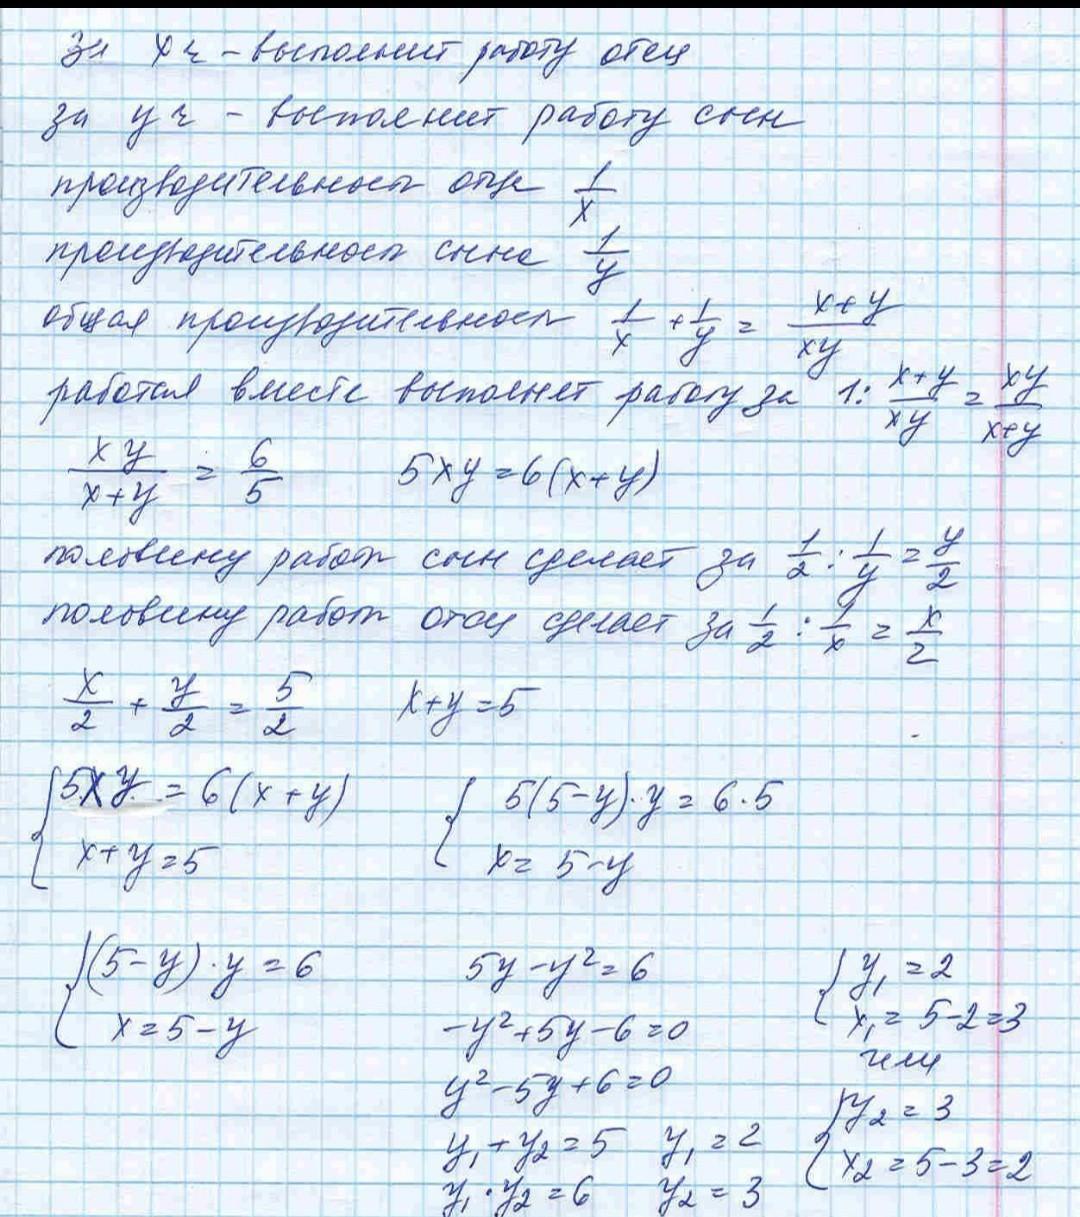 за x ч – выполнит работу отец
за y ч – выполнит работу сын
производительность отца 1/x
производительность сына 1/y
общая производительность 1/x + 1/y = (x+y)/xy
работая вместе выполнят работу за 1 : (x+y)/xy = xy/(x+y)
xy/(x+y) = 6/5 5xy = 6(x+y)
половину работы сын сделает за 1/2 : 1/y = y/2
половину работы отец сделает за 1/2 : 1/x = x/2
x/2 + y/2 = 5/2 x+y = 5
{ 5xy = 6(x+y) { 5(5-y)·y = 6·5
x+y = 5 x = 5-y
{ (5-y)·y = 6 5y - y² = 6 { y₁ = 2
x = 5-y -y² + 5y - 6 = 0 x₁ = 5-2 = 3
или
y² - 5y + 6 = 0 { y₂ = 3
y₁ + y₂ = 5 y₁ = 2 x₂ = 5-3 = 2
y₁ · y₂ = 6 y₂ = 3